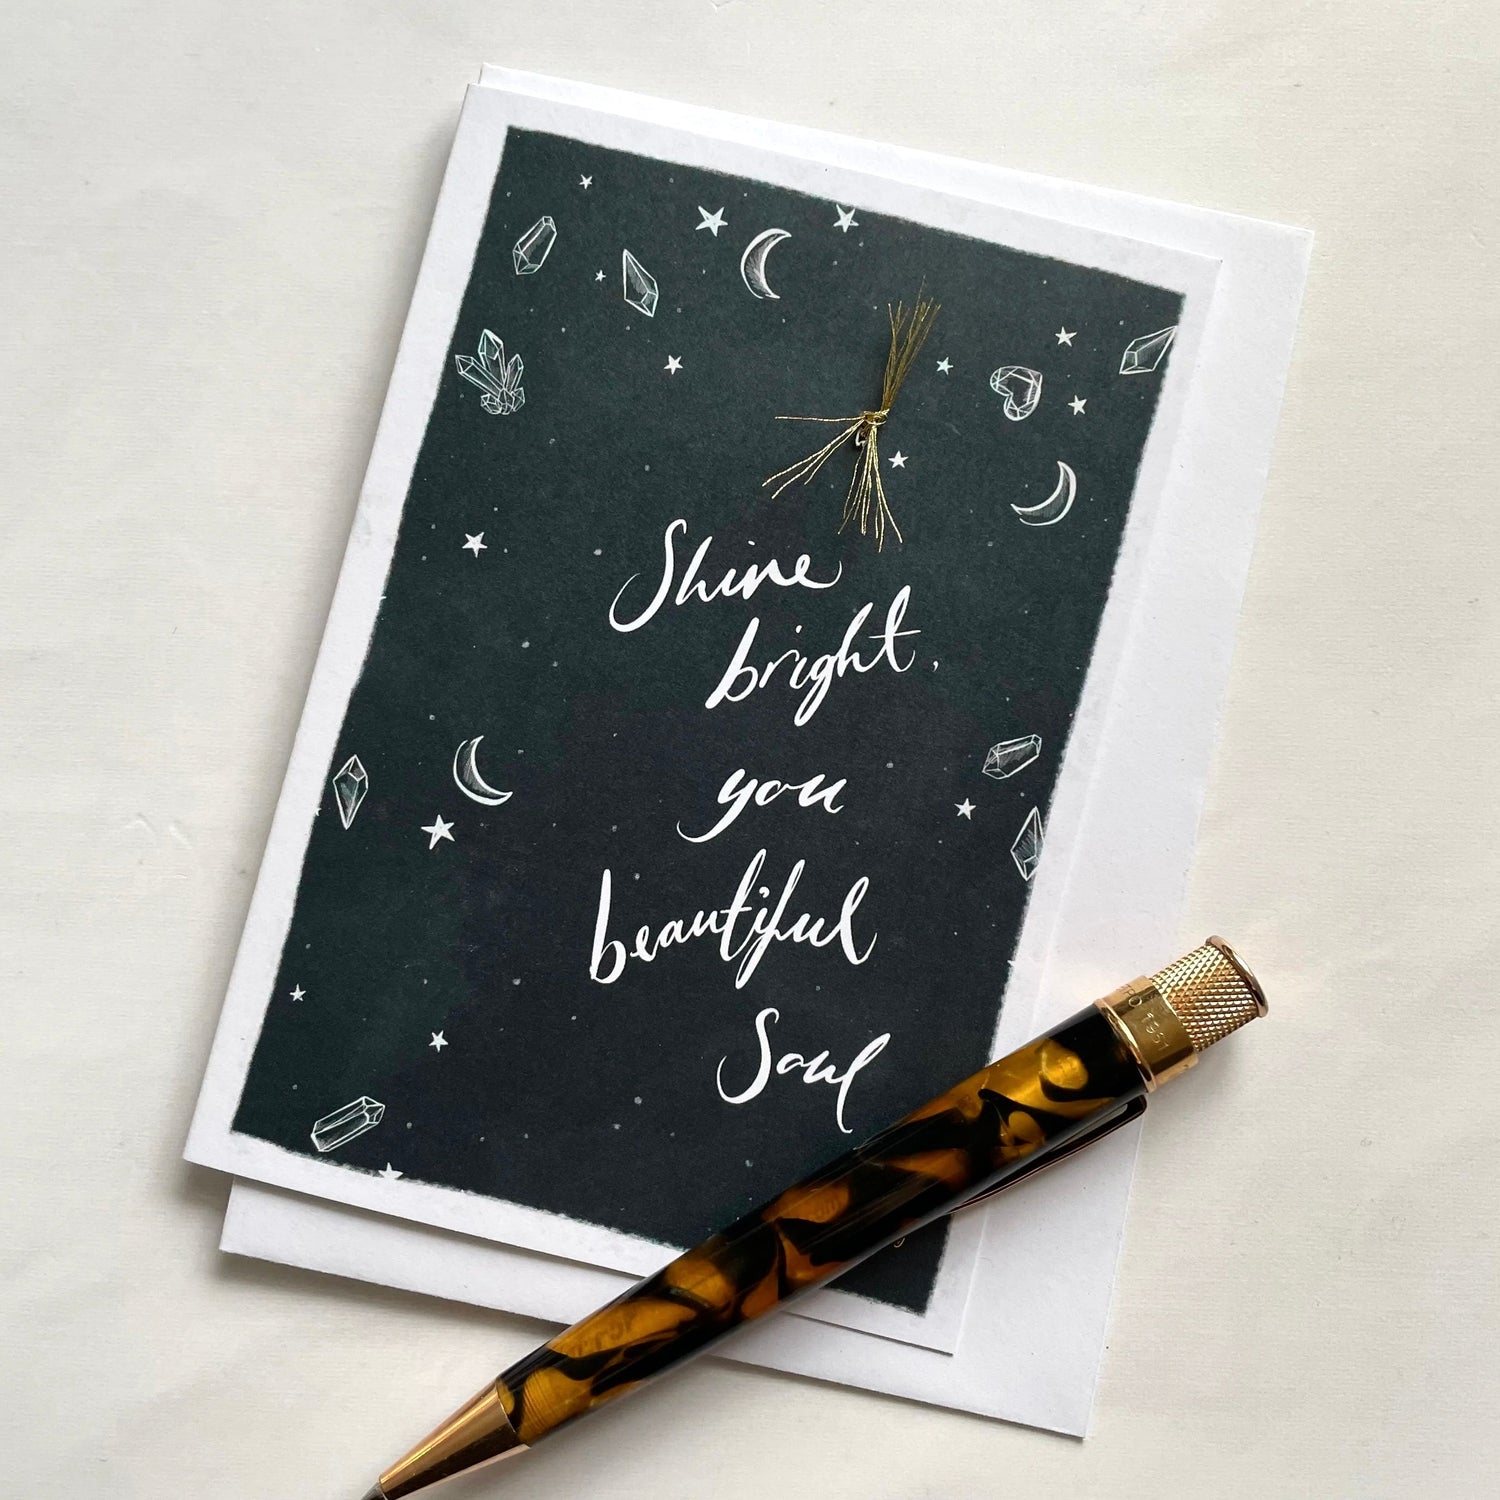 Shine
bright,
you
beautiful
Soul
1951